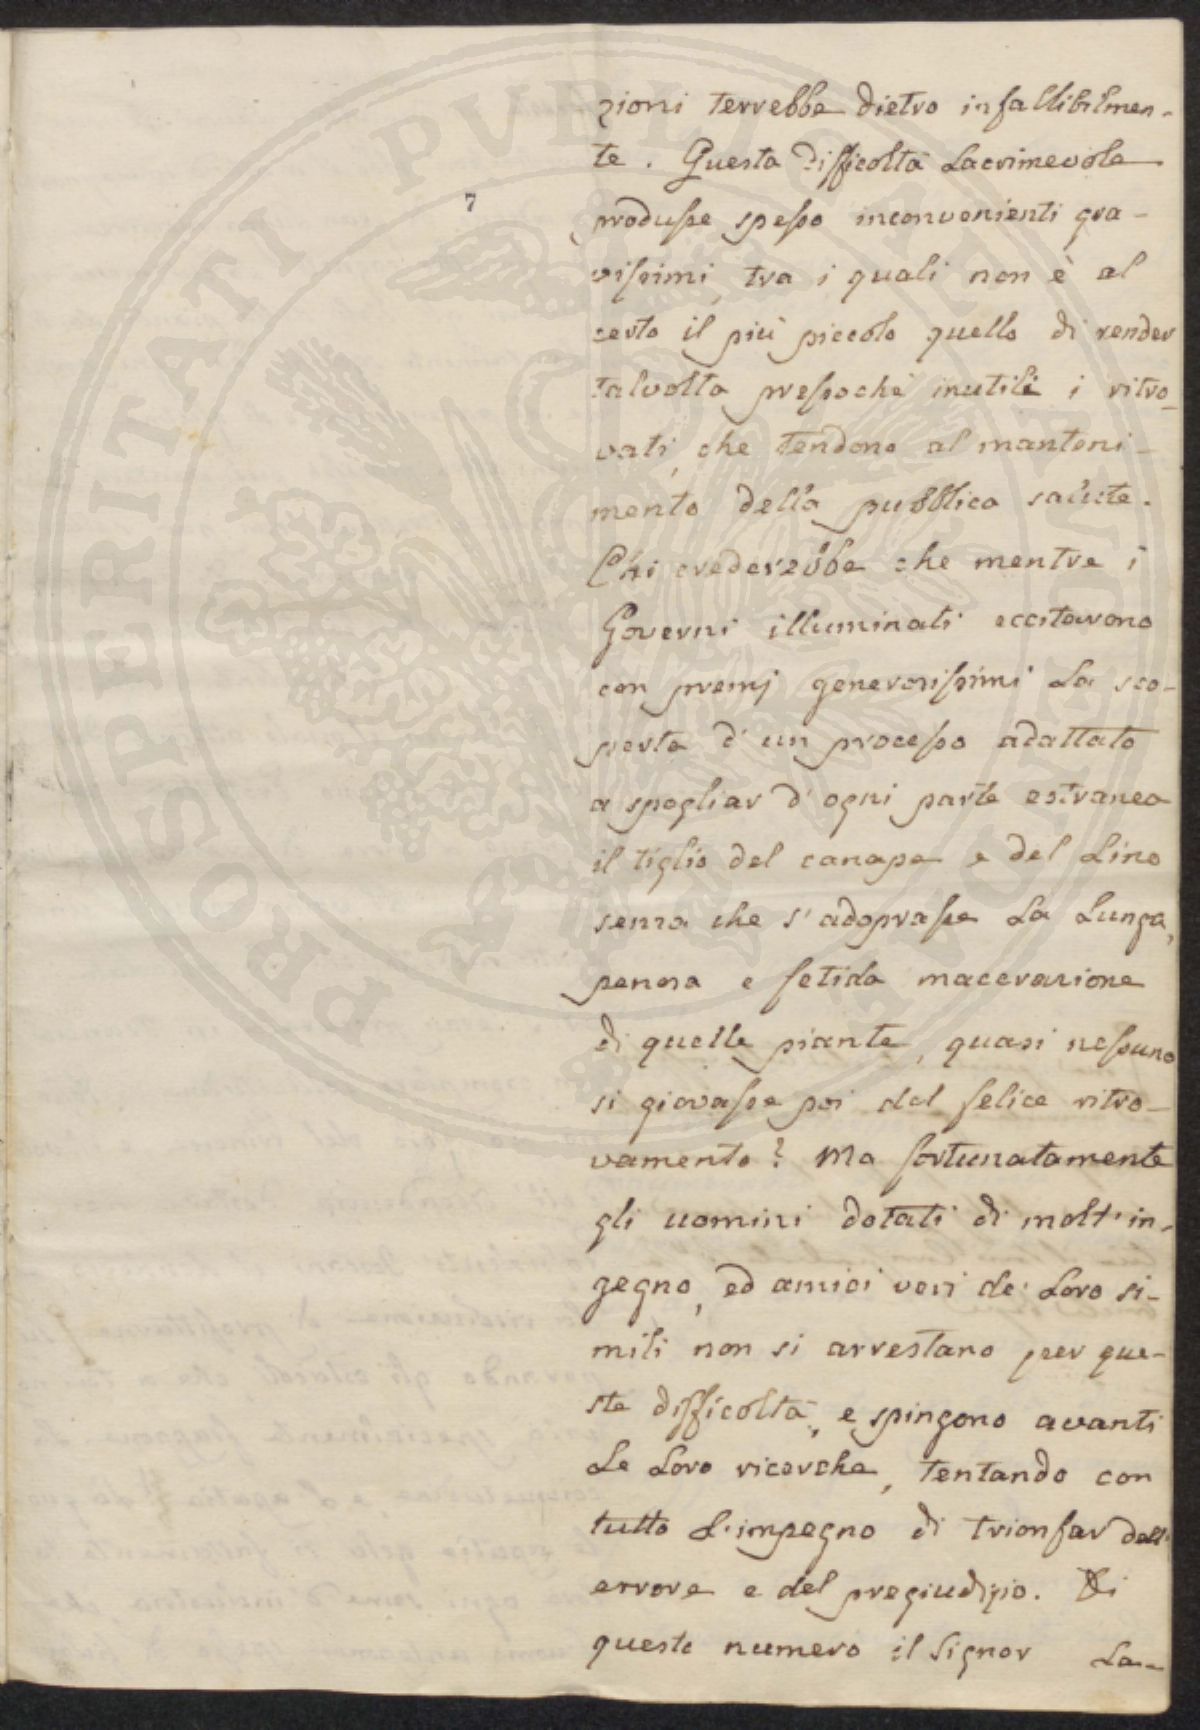 7
zioni terrebbe dietro infallibilmen-
te. Questa difficoltà Lacrimevole
produsse spesso inconvenienti gra-
vissimi, tra i quali non è al
certo il più piccolo quello di render
talvolta pressochè inutili i ritro-
vati, che tendono al manteni-
mento della pubblica salute.
Chi crederebbe che mentre i
Governi illuminati eccitavono
con premj generosissimi La sco-
perta d'un processo adattato
a spogliar d'ogni parte estranea
il tiglio del canape e del Lino
senza che s'adoprasse La Lunga,
penosa e fetida macerazione
di quelle piante, quasi nessuno
si giovasse poi del felice ritro-
vamento? Ma fortunatamente
gli uomini dotati di molt'in-
gegno, ed amici veri de' Loro si-
mili non si arrestano per que-
ste difficoltà, e spingono avanti
Le Loro ricerche, tentando con
tutto L'impegno di trionfar dell'
errore e del pregiudizio. Di
questo numero il Signor La-
PROSPERITATI PVBLICAE AVGENDAE